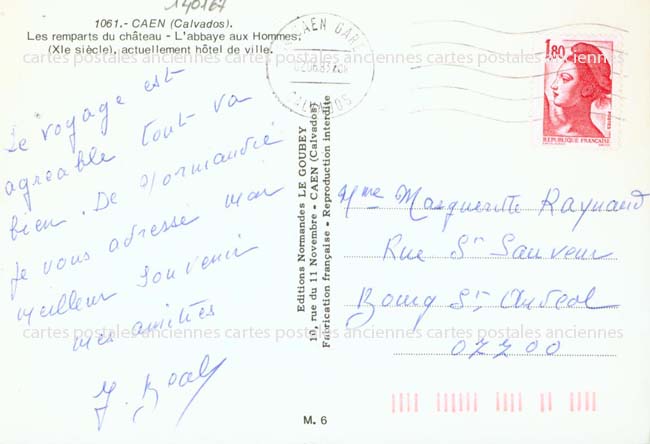 140167
1061.- CAEN (Calvados).
Les remparts du château - L'abbaye aux Hommes,
(XIe siècle), actuellement hôtel de ville.
Le voyage est
agréable tout va
bien. De Normandie
je vous adresse mon
meilleur souvenir
mes amitiés
CAEN GARE
CALVADOS
1,80
REPUBLIQUE FRANCAISE
Editions Normandes LE GOUBEY
19, rue du 11 Novembre - CAEN (Calvados)
Fabrication française - Reproduction interdite
Mme Marguerite Raynaud
Rue St Sauveur
Bourg St Andéol
07700
M. 6
cartes postales anciennes cartes postales anciennes cartes postales anciennes
cartes postales anciennes cartes postales anciennes cartes postales anciennes